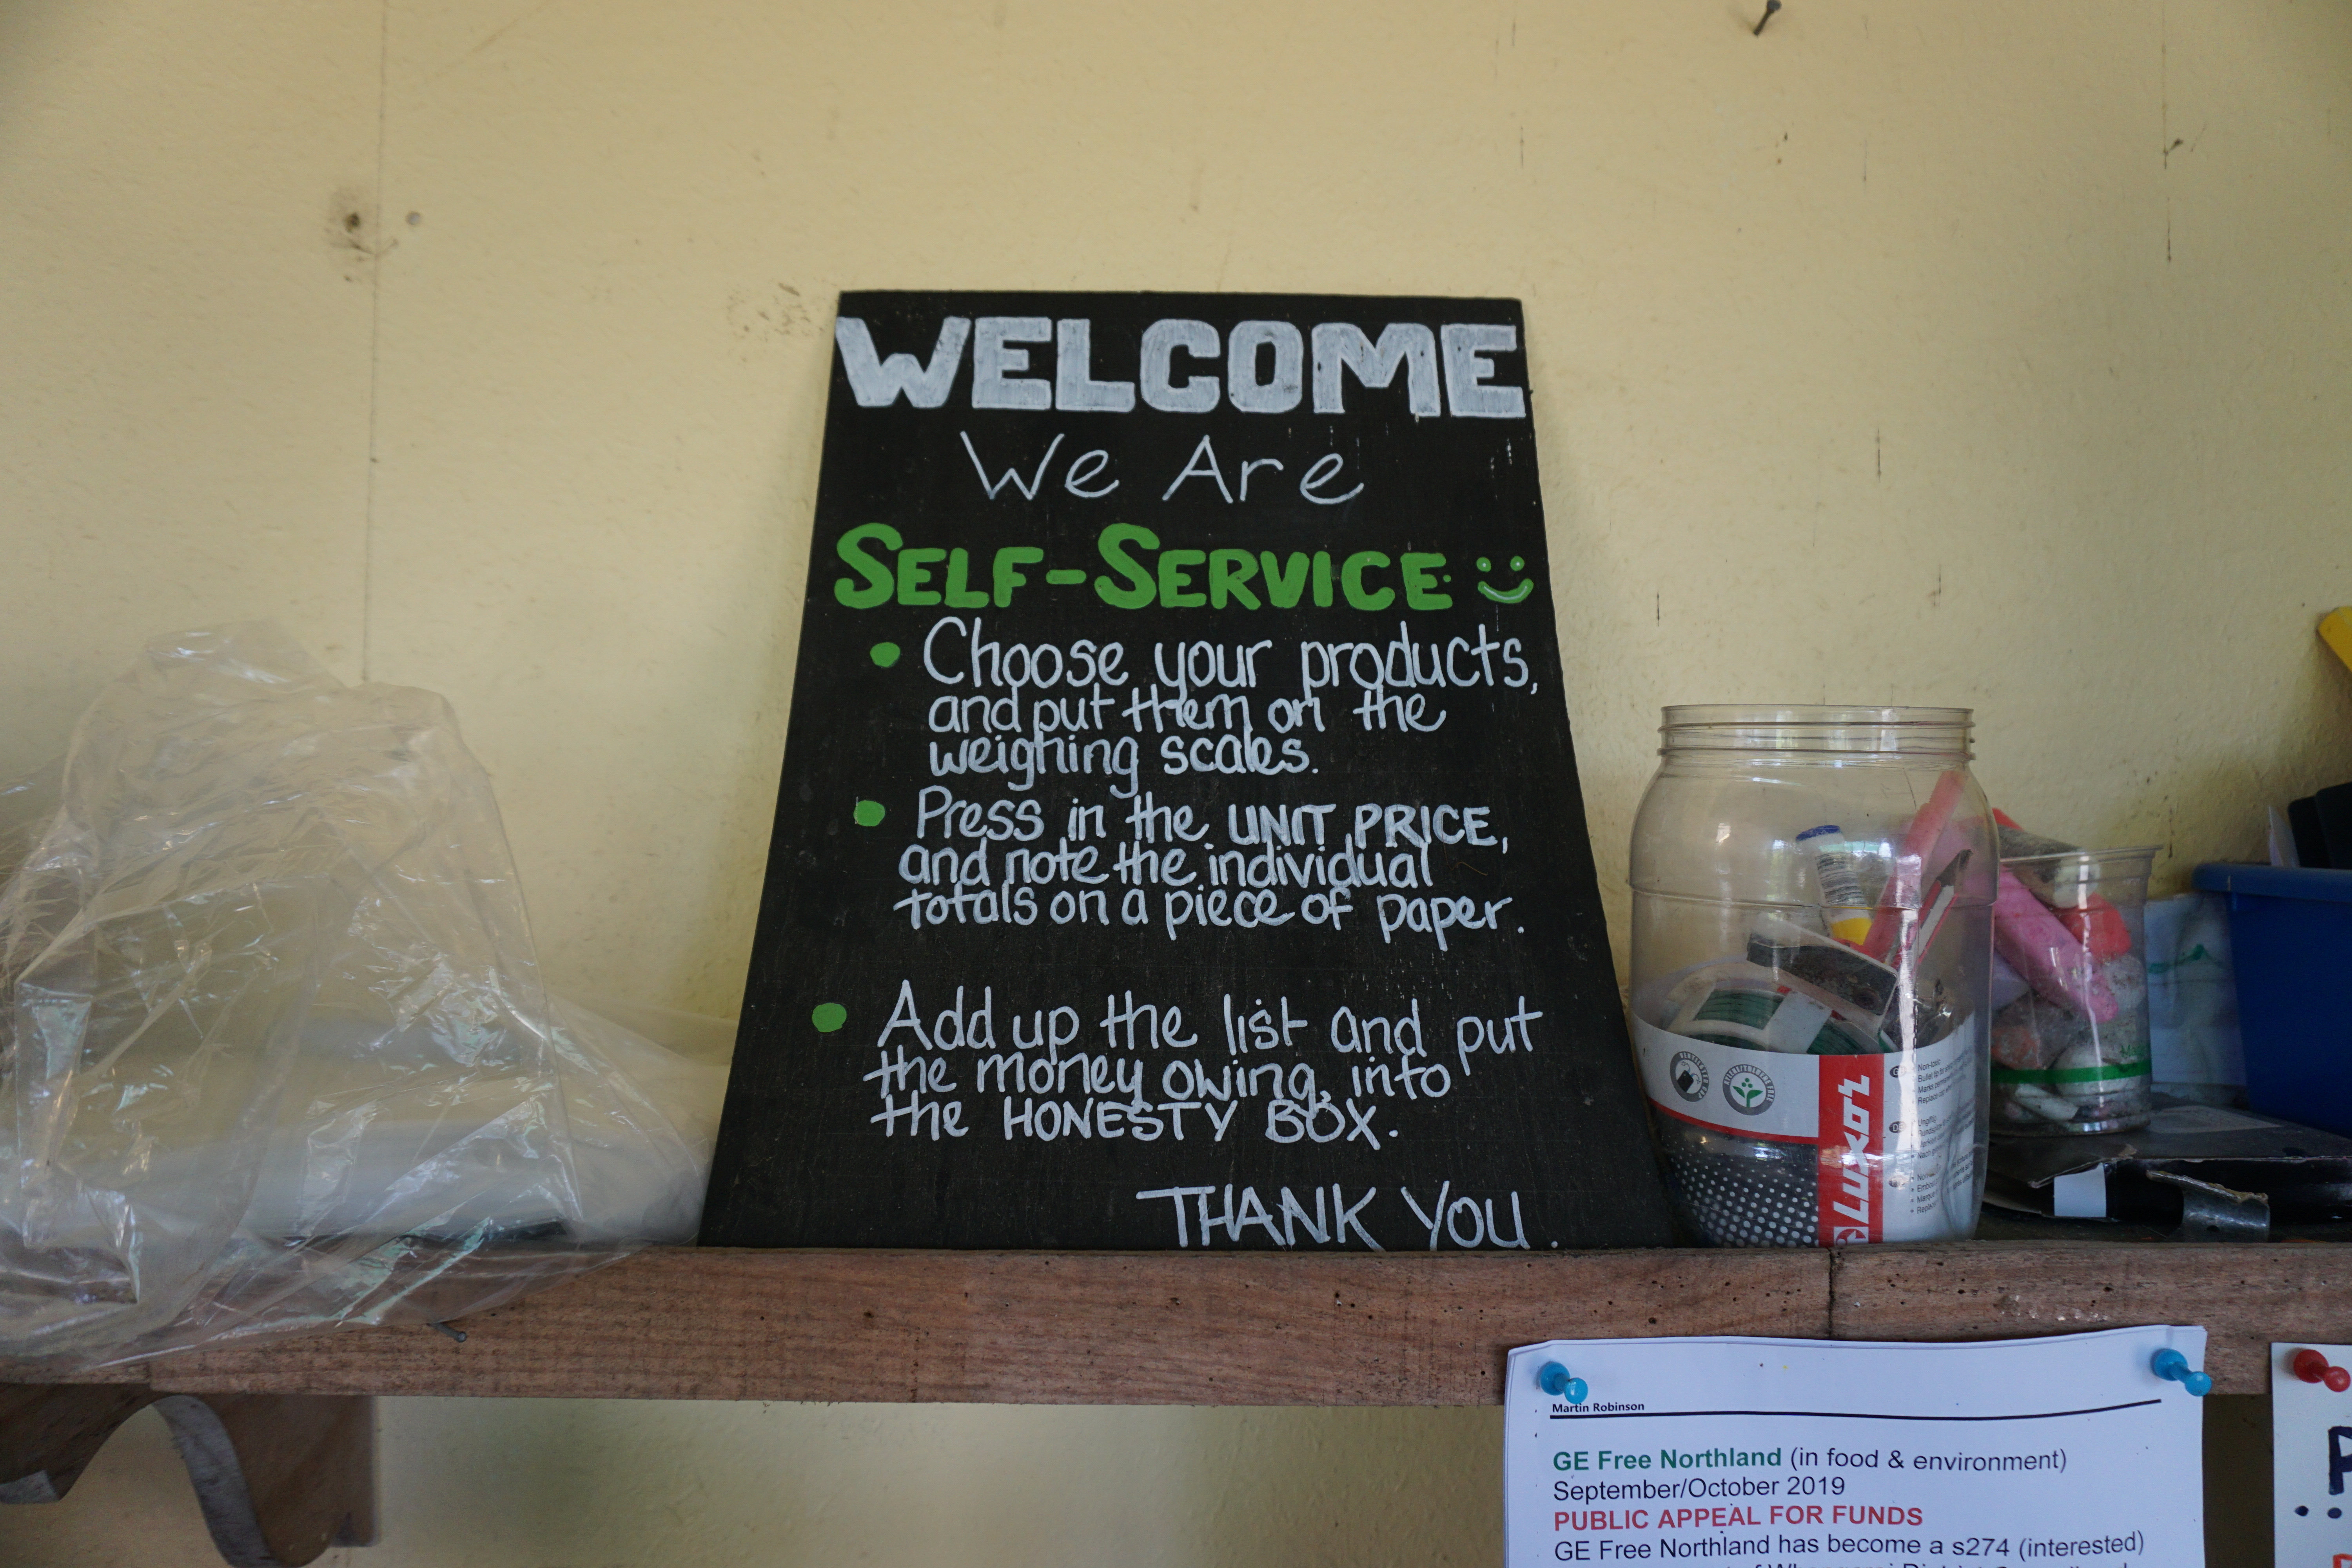 WELCOME
We Are
SELF-SERVICE
Choose your products,
and put them on the
weighing scales.
Press in the UNIT PRICE,
and note the individual
totals on a piece of paper.
Add up the list and put
the money owing, into
the HONESTY BOX.
THANK YOU.
LUXOR
Martin Robinson
GE Free Northland (in food & environment)
September/October 2019
PUBLIC APPEAL FOR FUNDS
GE Free Northland has become a s274 (interested)